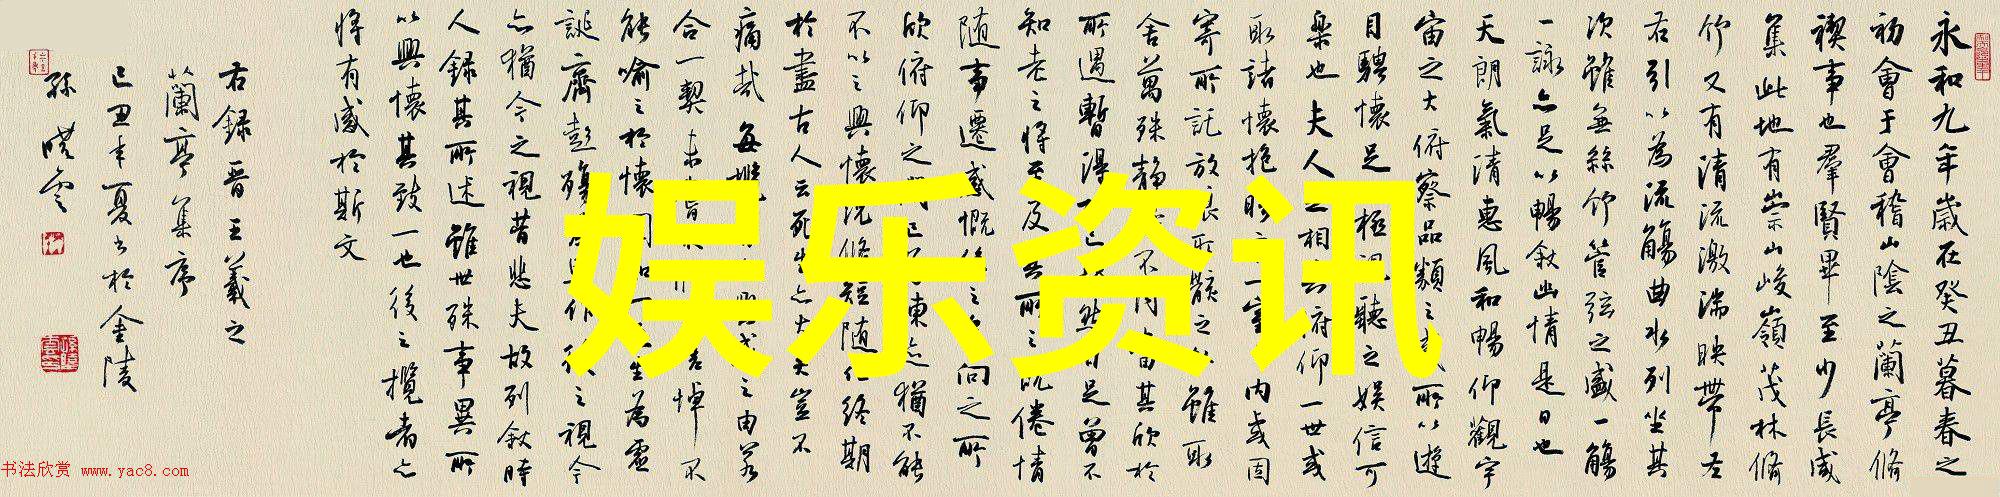 永和九年歲在癸丑暮春之
初會于會稽山陰之蘭亭脩
禊事也羣賢畢至少長咸
集此地有崇山峻嶺茂林脩
竹又有清流激湍映帶左
右引以為流觴曲水列坐其
次雖無絲竹管弦之盛一觴
一詠亦足以暢敘幽情是日也
天朗氣清惠風和暢仰觀宇
宙之大俯察品類之盛所以遊
目騁懷足極視聽之娛信可
樂也夫人之相與俯仰一世或
取諸懷抱 一室內或因
寄所託放浪形骸之 雖取
舍萬殊靜 不同 其欣於
所遇暫得 足曾不
知老之將至及其所之既倦情
隨事遷感慨係之 向之所
欣俯仰之間已為陳迹猶不能
不以之興懷況脩短隨化終期
於盡古人云死生亦大矣豈不
痛哉每攬 之由若
合一契未 悼不
能喻之於懷固知一 生為虛
誕齊彭殤 之視今
亦猶今之視昔悲夫故列敘時
人錄其所述雖世殊事異所
以興懷其致一也後之攬者亦
將有感於斯文
右錄晉王羲之
蘭亭集序
己丑年夏書於金陵
孫曉雲
娱乐资讯
书法欣赏 www.yac8.com